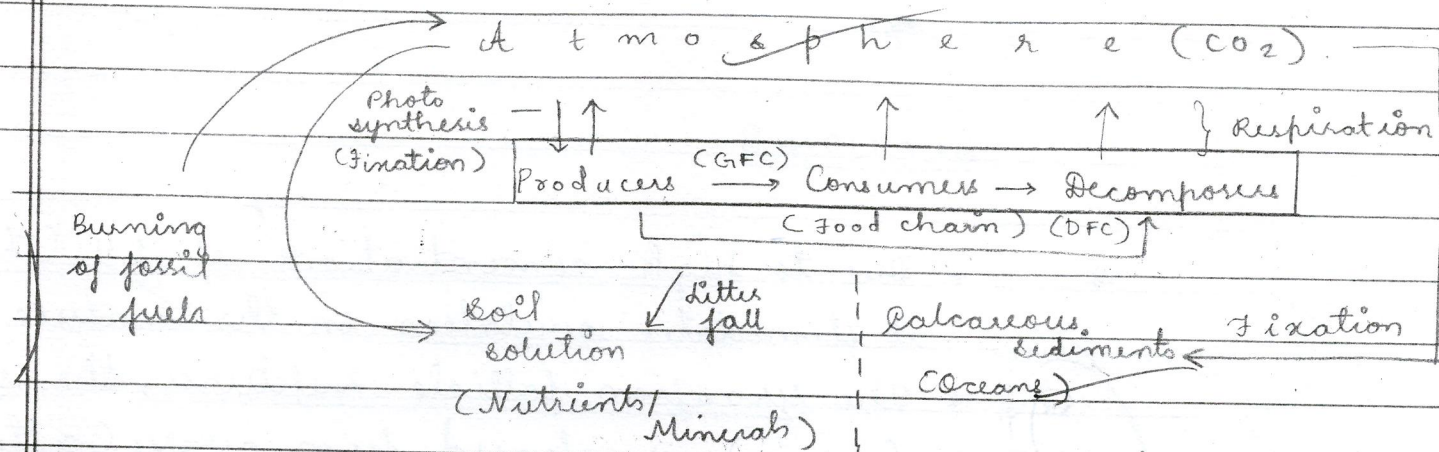 Atmosphere (CO2)
Photo
synthesis
(Fixation)
} Respiration
(GFC)
Producers → Consumers → Decomposers
(Food chain) (DFC)
Burning
of fossil
fuels
Soil
solution
Litter
fall
Calcareous
Sediments
Fixation
(Oceans)
(Nutrients/
Minerals)